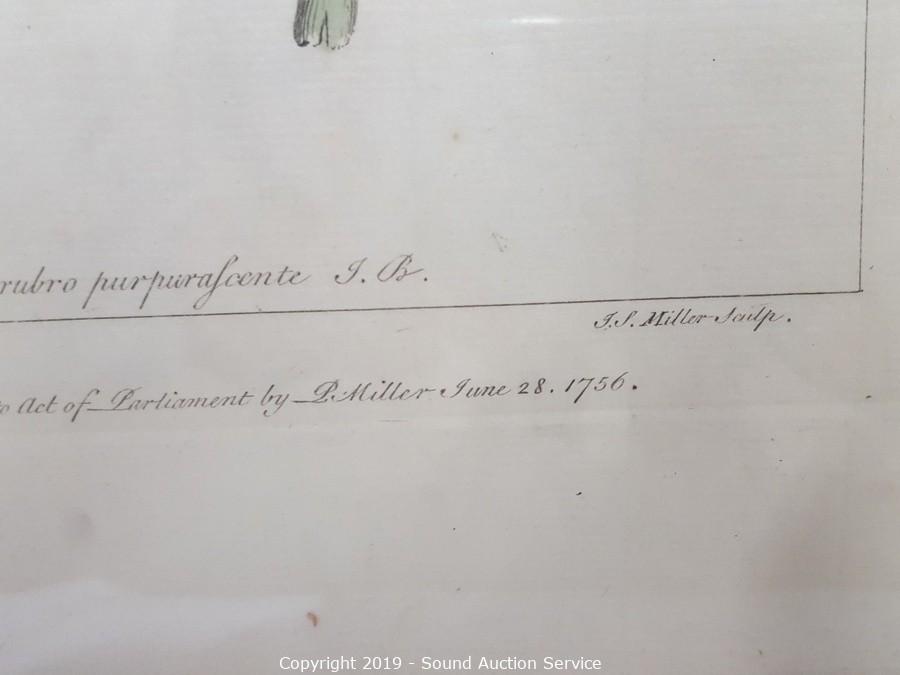 rubro purpuraſcente J. B.
J. S. Miller Sculp.
to Act of Parliament by P. Miller June 28. 1756.
Copyright 2019 - Sound Auction Service